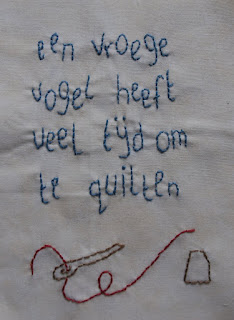 een vroege
vogel heeft
veel tijd om
te quilten